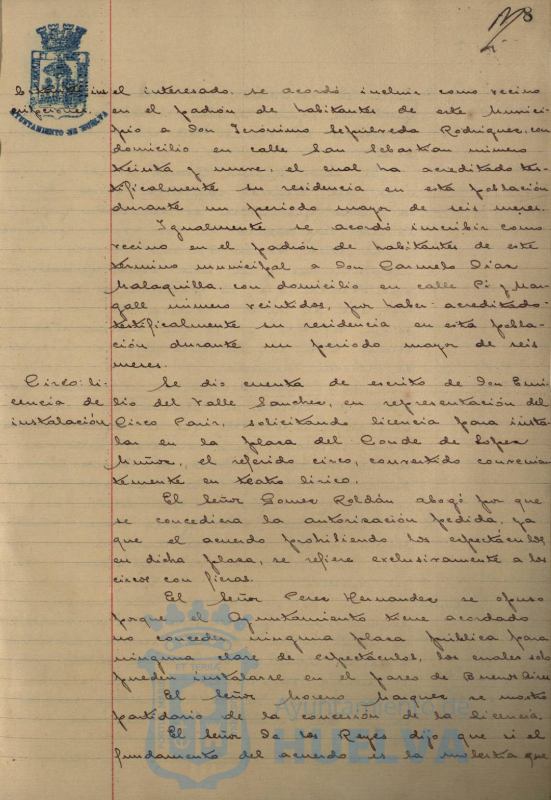 el interesado, se acordó incluir como vecino
en el padrón de habitantes de este Munici-
pio a don Jerónimo Sepulveda Rodriguez, con
domicilio en calle San Sebastian número
treinta y nueve, el cual ha acreditado tes-
tificalmente su residencia en esta población
durante un periodo mayor de seis meses.
Igualmente se acordó inscribir como
vecino en el padrón de habitantes de este
término municipal a don Carmelo Diaz
Malaquilla, con domicilio en calle Pi y Mar-
gall número veintidos, por haber acreditado
testificalmente su residencia en esta pobla-
ción durante un periodo mayor de seis
meses.
Circo: li-
cencia de
instalación
Se dió cuenta de escrito de don Emi-
lio del Valle Sanchez, en representación del
Circo Paris, solicitando licencia para insta-
lar en la plaza del Conde de Lopez
Muñoz, el referido circo, convertido convenien-
temente en teatro lírico.
El Señor Gomez Roldán abogó por que
se concediera la autorización pedida, ya
que el acuerdo prohibiendo los espectáculos
en dicha plaza, se refiere exclusivamente a los
circos con fieras.
El Señor Perez Hernandez se opuso
porque el Ayuntamiento tiene acordado
no conceder ninguna plaza pública para
ninguna clase de espectáculos, los cuales solo
pueden instalarse en el paseo de Buenos Aires
El Señor Moreno Marquez se mostró
partidario de la concesión de la licencia.
El Señor de los Reyes dijo que si el
fundamento del acuerdo es la molestia que
AYUNTAMIENTO DE HUELVA
Ayuntamiento de
HUELVA